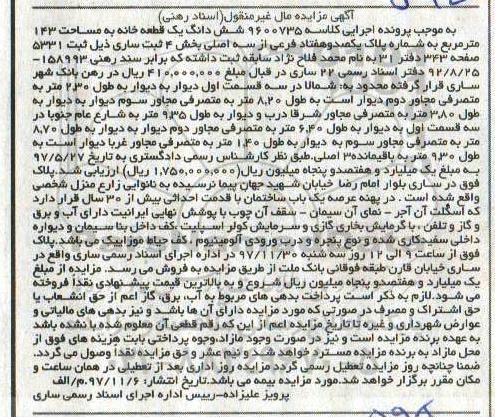 آگهی مزایده مال غیرمنقول(اسناد رهنی)
به موجب پرونده اجرایی کلاسه ۹۶۰۰۷۳۵ شش دانگ یک قطعه خانه به مساحت ۱۴۳
مترمربع به شماره پلاک یکصدوهفتاد فرعی از سه اصلی بخش ۴ ثبت ساری ذیل ثبت ۵۳۳۱
صفحه ۳۴۳ دفتر ۳۱ به نام محمد فلاح نژاد سابقه ثبت داشته که برابر سند رهنی ۱۵۸۹۹۳-
۹۲/۸/۲۵ دفتر اسناد رسمی ۲۲ ساری در قبال مبلغ ۴۱۰,۰۰۰,۰۰۰ ریال در رهن بانک شهر
ساری قرار گرفته محدود به شمالا در سه قسمت اول دیوار به دیوار به طول ۲,۳۰ متر به
متصرفی مجاور دوم دیوار است به طول ۸,۲۰ متر به متصرفی مجاور سوم دیوار به دیوار به
طول ۳,۸۰ متر به متصرفی مجاور شرقا درب و دیوار به طول ۹,۳۵ متر به شارع عام جنوبا در
سه قسمت اول به دیوار به طول ۶,۴۰ متر به متصرفی مجاور دوم دیوار به دیوار به طول ۸,۷۰
متر به متصرفی مجاور سوم به دیوار به طول ۱,۴۰ متر به متصرفی مجاور غربا دیوار است به
طول ۹,۳۰ متر به باقیمانده۳ اصلی.طبق نظر کارشناس رسمی دادگستری به تاریخ ۹۷/۵/۲۷
به مبلغ یک میلیارد و هفتصدو پنجاه میلیون ریال(۱,۷۵۰,۰۰۰,۰۰۰ ریال) ارزیابی شد.پلاک
فوق در ساری بلوار امام رضا خیابان شهید جهان پیما نرسیده به نانوایی زارع منزل شخصی
واقع شده است . در پهنه عرصه یک باب ساختمان با قدمت احداثی بیش از ۳۰ سال قرار دارد
که اسکلت آن آجر - نمای آن سیمان - سقف آن چوب با پوشش نهایی ایرانیت دارای آب و برق
و گاز و تلفن ، با گرمایش بخاری گازی و سرمایش کولر اسپلیت.کف داخل بنا سیمان و دیواره
داخلی سفیدکاری شده و نوع پنجره و درب ورودی آلومینیوم . کف حیاط موزاییک می باشد.پلاک
فوق از ساعت ۹ الی ۱۲ روز سه شنبه ۹۷/۱۱/۳۰ در اداره اجرای اسناد رسمی ساری واقع در
ساری خیابان قارن طبقه فوقانی بانک ملت از طریق مزایده به فروش می رسد. مزایده از مبلغ
یک میلیارد و هفتصدو پنجاه میلیون ریال شروع و به بالاترین قیمت پیشنهادی نقدا فروخته
می شود.لازم به ذکر است پرداخت بدهی های مربوط به آب، برق، گاز اعم از حق انشعاب یا
حق اشتراک و مصرف در صورتی که مورد مزایده دارای آن ها باشد و نیز بدهی های مالیاتی و
عوارض شهرداری و غیره تا تاریخ مزایده اعم از این که رقم قطعی آن معلوم شده یا نشده باشد
به عهده برنده مزایده است و نیز در صورت وجود مازاد،وجوه پرداختی بابت هزینه های فوق از
محل مازاد به برنده مزایده مسترد خواهد شد و نیم عشر و حق مزایده نقدا وصول می گردد.
ضمنا چنانچه روز مزایده تعطیل رسمی گردد مزایده روز اداری بعد از تعطیلی در همان ساعت و
مکان مقرر برگزار خواهد شد.مورد مزایده بیمه می باشد.تاریخ انتشار: ۹۷/۱۱/۶.م/الف
پرویز علیزاده-رییس اداره اجرای اسناد رسمی ساری